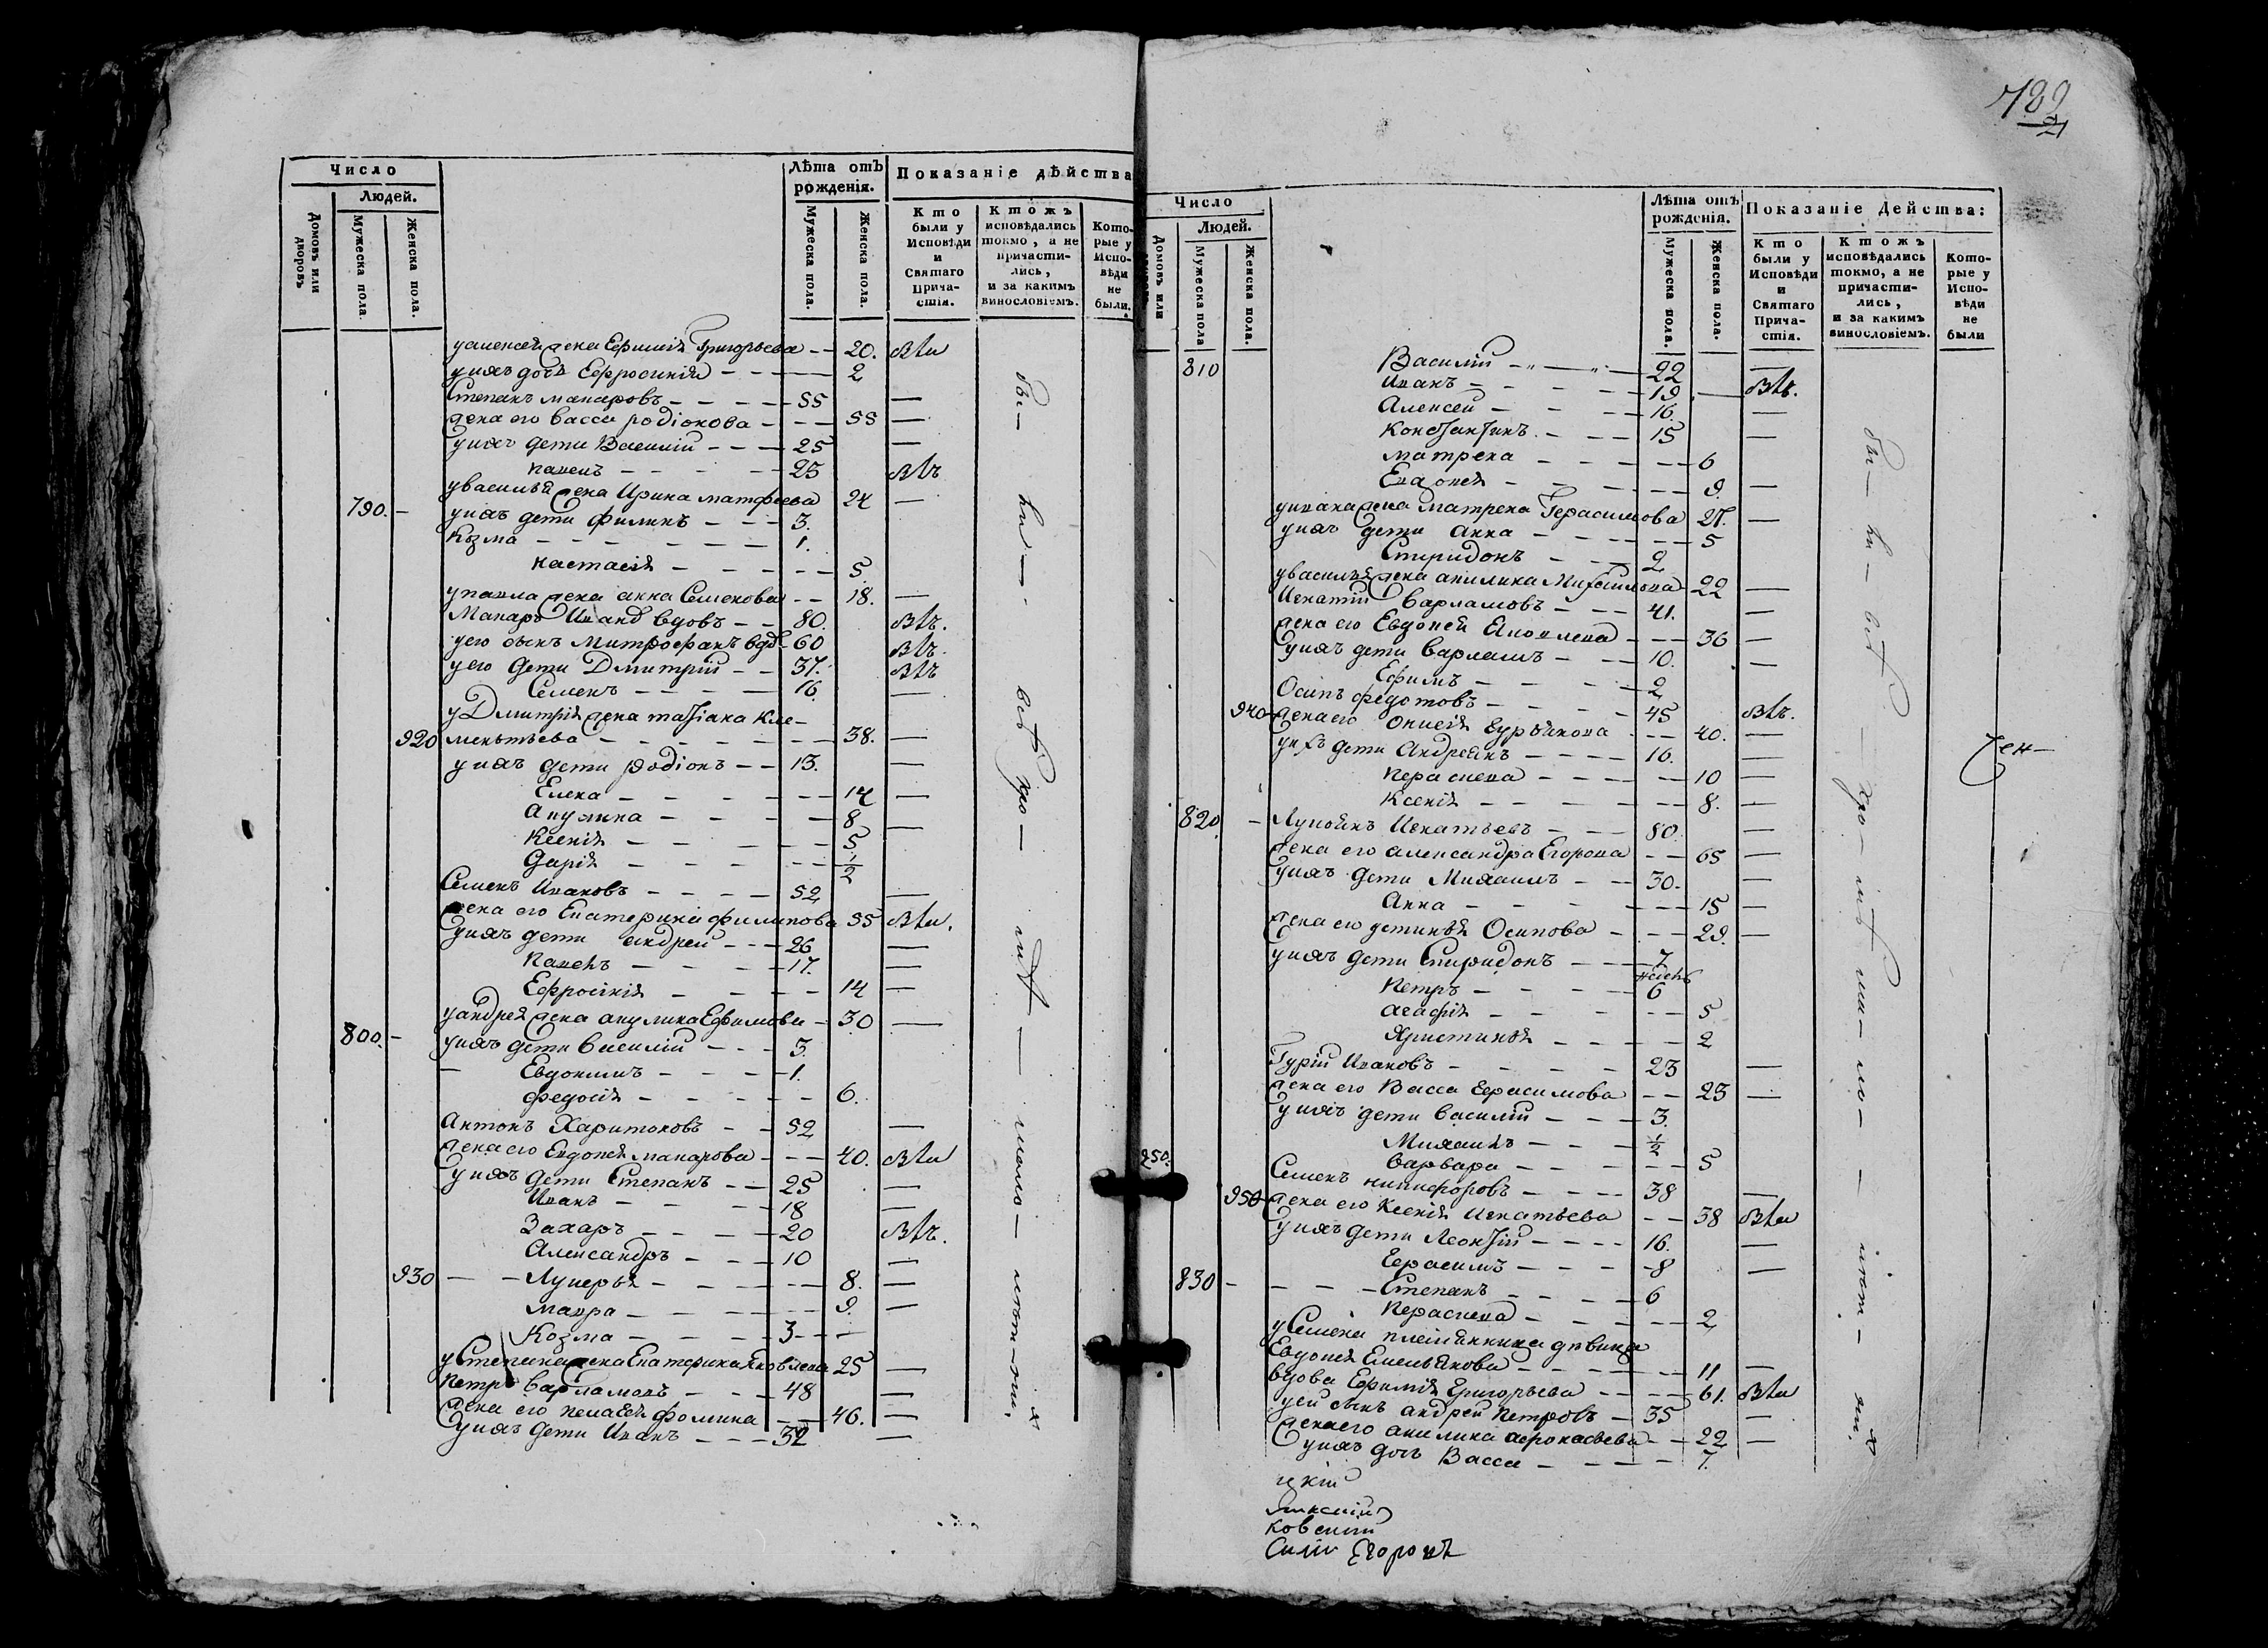 Число
Людей.
Домовъ или дворовъ
Мужеска пола.
Женска пола.
Лѣта отъ рожденія.
Мужеска пола.
Женска пола.
Показаніе дѣйства
Кто были у Исповѣди и Святаго Прича-стія.
Ктожъ исповѣдались токмо, а не причасти-лись, и за какимъ винословіемъ.
Кото-рые у Испо-вѣди не были.
уалексея жена Ефимія Григорьева 20.
унихъ дочь Ефросинія 2
Степанъ макаровъ 55
жена его васса родіонова 55
унихъ дети Василій 25
павелъ 23
увасилья жена Ирина матфеева 24
790. унихъ дети филипъ 3.
Козма 1.
настасія 5.
упавла жена анна Семенова 18.
Макаръ Иванъ вдовъ 80.
уего сынъ Митрофанъ вдв 60
уего дети Дмитрій 37.
Семенъ 16
уДмитрія жена татіана Кле-
920 ментьева 38.
унихъ дети родіонъ 13.
Елена 14
Акулина 8
Ксенія 5
Дарія 1/2
Семенъ Ивановъ 52
жена его Екатерина филипова 55
унихъ дети андрей 26
павелъ 17.
Ефросинія 14
уандрея жена акулина Ефимова 30
800. унихъ дети василій 3.
Евдокимъ 1.
федосія 6.
Антонъ Харитоновъ 52
жена его Евдокея макарова 40.
унихъ дети Степанъ 25
Иванъ 18
Захаръ 20
Александръ 10
930 Лукерья 8.
мавра 9.
Козма 3
уСтепана жена Екатерина Яковлева 25
петръ варламовъ 48
жена его пелагея фомина 46.
унихъ дети Иванъ 32
789
Число
Людей.
Домовъ или
Мужеска пола
Женска пола.
Лѣта отъ рожденія.
Мужеска пола.
Женска пола.
Показаніе Действа:
Кто были у Исповѣди и Святаго Прича-стія.
Ктожъ исповѣдались токмо, а не причасти-лись, и за какимъ винословіемъ.
Кото-рые у Испо-вѣди не были
810 Василій 22
Иванъ 19
Алексей 16
Константинъ 15
матрена 6
Евдокея 9.
уивана жена матрена Герасимова 27.
унихъ дети анна 5
Спиридонъ 2
увасилья жена акилина Михайлова 22
Игнатій варламовъ 41.
жена его Евдокея Яковлева 36
унихъ дети варламъ 10.
Ефимъ 2
Осипъ федотовъ 45
940 жена его 40.
унихъ дети Андреянъ 16.
параскева 10
Ксенія 8.
820 Лукоянъ Игнатьевъ 80.
жена его александра Егорова 65
унихъ дети Михаилъ 30.
Анна 15
жена его устинья Осипова 29.
унихъ дети Спиридонъ 7
петръ 6
агафія 5
Христинья 2
Гурій Ивановъ 23
жена его Васса Герасимова 23
унихъ дети василій 3.
Михаилъ 1/2
варвара 5
250. Семенъ никифоровъ 38
950 жена его Ксенія Игнатьева 38
унихъ дети Леонтій 16.
Герасимъ 8
830 Степанъ 6
параскева 2
уСемена племянница девица
Евдокея Емельянова 11
вдова Ефимія Григорьева 61.
уей сынъ андрей петровъ 35
жена его акилина афонасьева 22
унихъ дочь Васса 7.
ковскій
Егоровъ